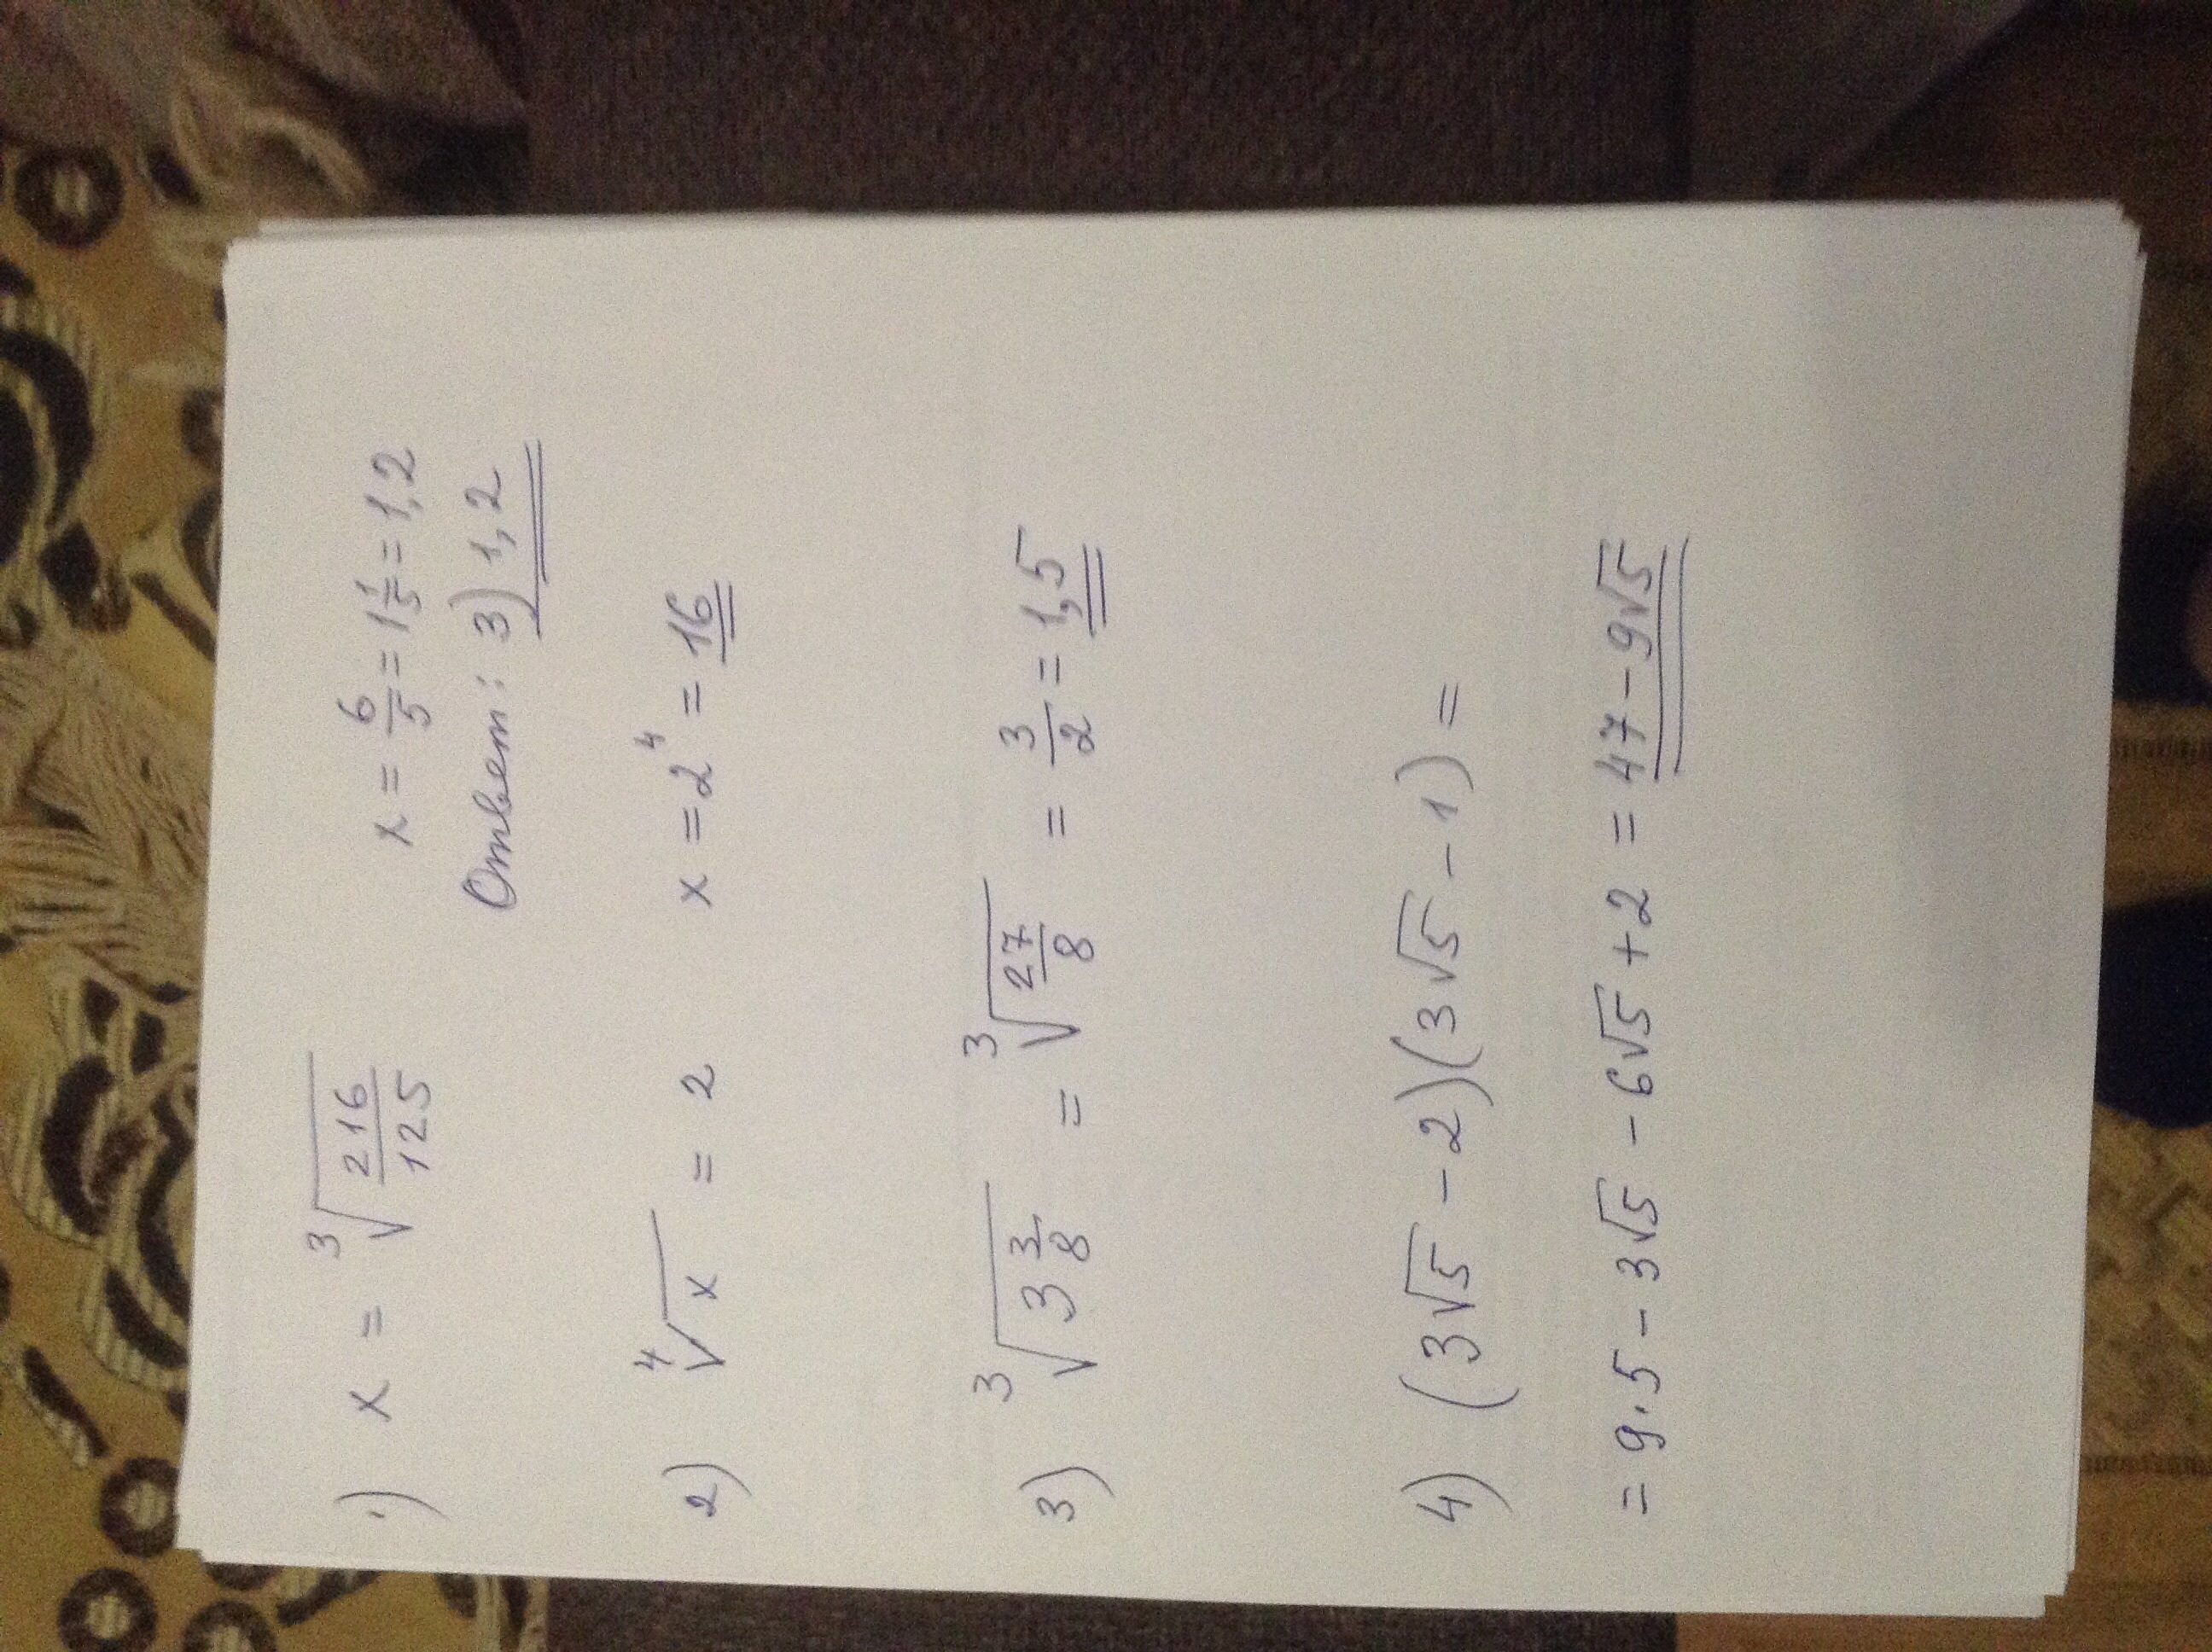 1) x = ∛(216/125) x = 6/5 = 1 1/5 = 1,2
Ответ: 3) 1,2
2) ∜x = 2 x = 2⁴ = 16
3) ∛(3 3/8) = ∛(27/8) = 3/2 = 1,5
4) (3√5 - 2)(3√5 - 1) =
= 9·5 - 3√5 - 6√5 + 2 = 47 - 9√5